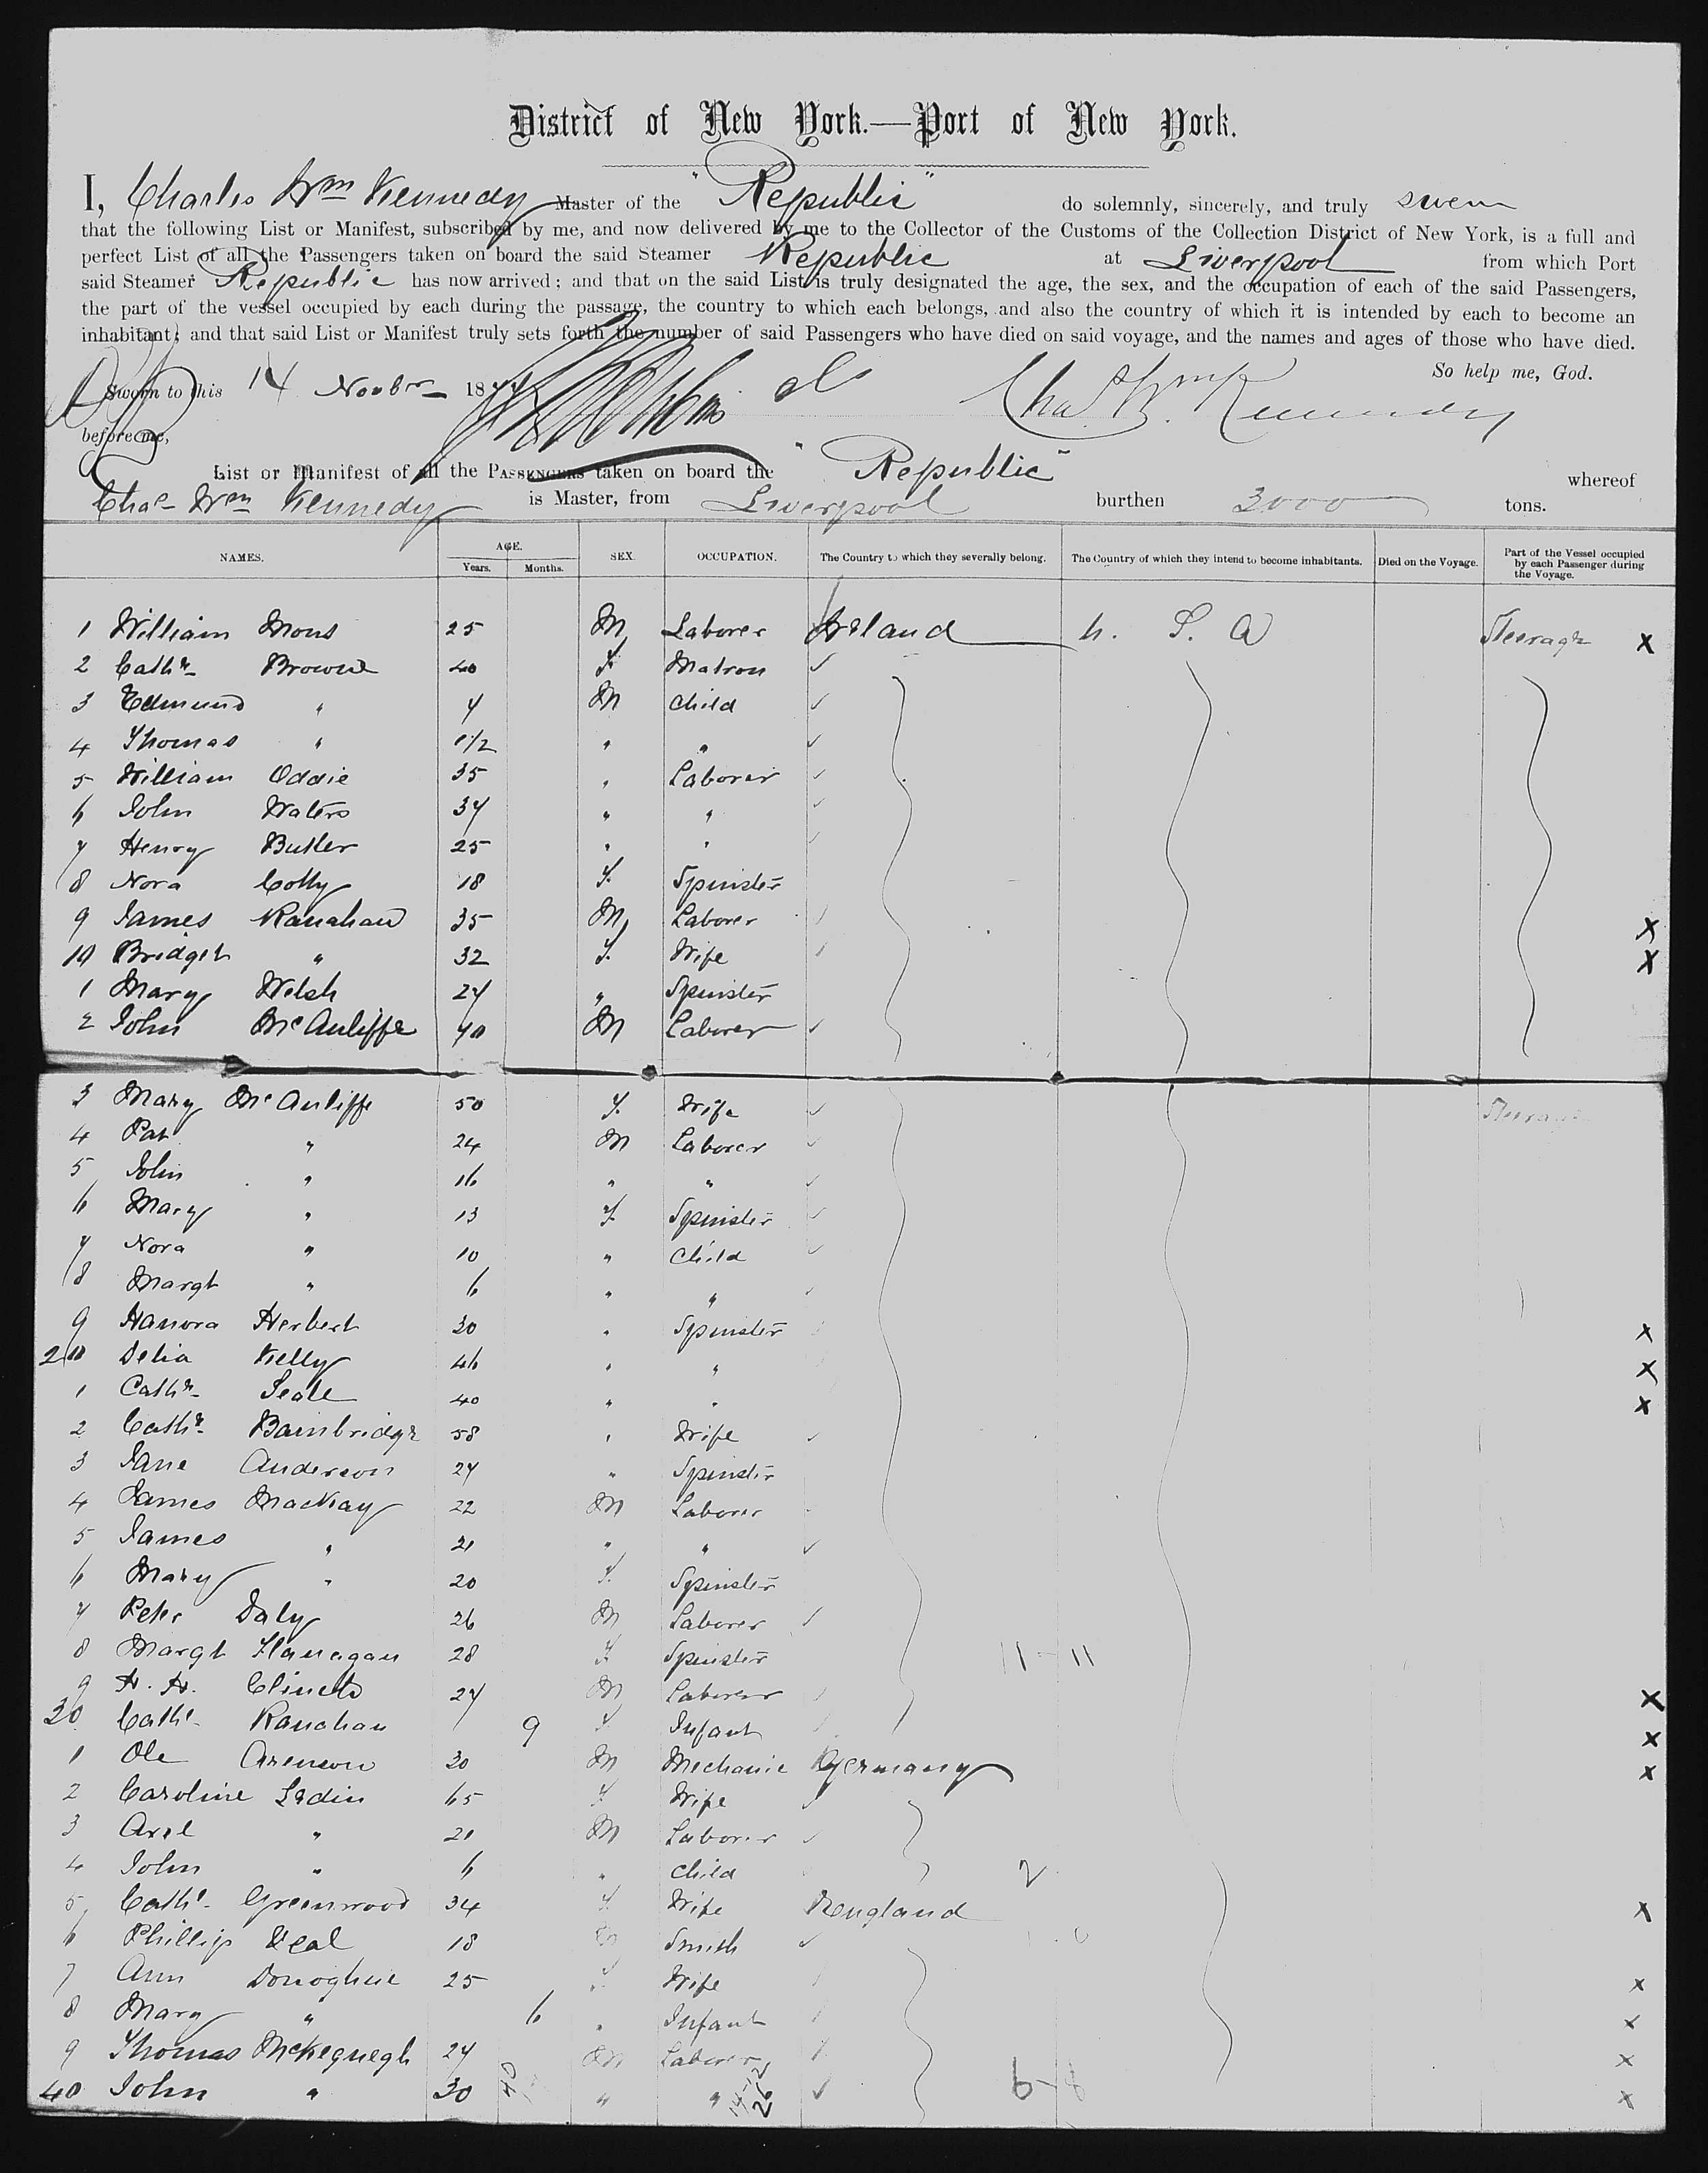 District of New York.—Port of New York.
I, Charles Wm Kennedy Master of the "Republic" do solemnly, sincerely, and truly swear
that the following List or Manifest, subscribed by me, and now delivered by me to the Collector of the Customs of the Collection District of New York, is a full and
perfect List of all the Passengers taken on board the said Steamer Republic at Liverpool from which Port
said Steamer Republic has now arrived; and that on the said List is truly designated the age, the sex, and the occupation of each of the said Passengers,
the part of the vessel occupied by each during the passage, the country to which each belongs, and also the country of which it is intended by each to become an
inhabitant; and that said List or Manifest truly sets forth the number of said Passengers who have died on said voyage, and the names and ages of those who have died.
So help me, God.
Sworn to this 14 Novbr 187 Chas Wm Kennedy
before me,
List or Manifest of all the Passengers taken on board the "Republic" whereof
Chas Wm Kennedy is Master, from Liverpool burthen 3000 tons.
NAMES. AGE. Years. Months. SEX. OCCUPATION. The Country to which they severally belong. The Country of which they intend to become inhabitants. Died on the Voyage. Part of the Vessel occupied by each Passenger during the Voyage.
1 William Mons 25 M Laborer Ireland U. S. A Steerage X
2 Cathe Browne 40 F Matron
3 Edmund " 4 M Child
4 Thomas " 1/2 " "
5 William Oddie 35 " Laborer
6 John Waters 37 " "
7 Henry Butler 25 " "
8 Nora Colly 18 F. Spinster
9 James Ranahan 35 M Laborer X
10 Bridget " 32 F. Wife X
1 Mary Welsh 27 " Spinster
2 John McAuliffe 70 M Laborer
3 Mary McAuliffe 50 F. Wife Steerage
4 Pat " 24 M Laborer
5 John " 16 " "
6 Mary " 13 F. Spinster
7 Nora " 10 " Child
8 Margt " 6 " "
9 Hanora Herbert 30 " Spinster X
20 Delia Kelly 46 " " X
1 Cathe Seale 40 " " X
2 Cathe Bainbridge 58 " Wife
3 Jane Anderson 27 " Spinster
4 James Mackay 22 M Laborer
5 James " 21 " "
6 Mary " 20 F. Spinster
7 Peter Daly 26 M Laborer
8 Margt Flanagan 28 F. Spinster 11 - 11
9 H. H. 27 M Laborer X
30 Cathe Ranahan 9 F Infant X
1 Ole Arenson 30 M Mechanic Germany X
2 Caroline Ledin 65 F. Wife
3 Axel " 21 M Laborer
4 John " 6 " Child 2
5 Cathe Greenwood 34 F. Wife England X
6 Phillip Veal 18 M Smith
7 Ann Donoghue 25 F. Wife X
8 Mary " 6 " Infant X
9 Thomas McKegnegh 27 M Laborer X
40 John " 30 " " 6 - 8 X